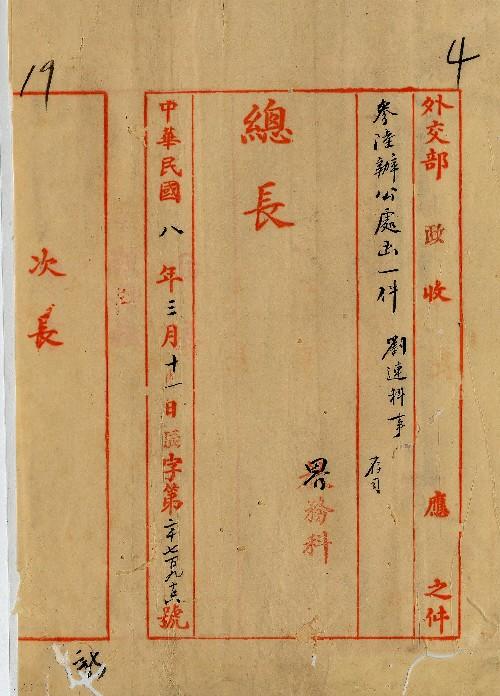 4
外交部 政 收 應 之件
參陸辦公處函一件 劉連科事
存司
總長
界務科
中華民國八年三月十一日 字第 號
19
次長